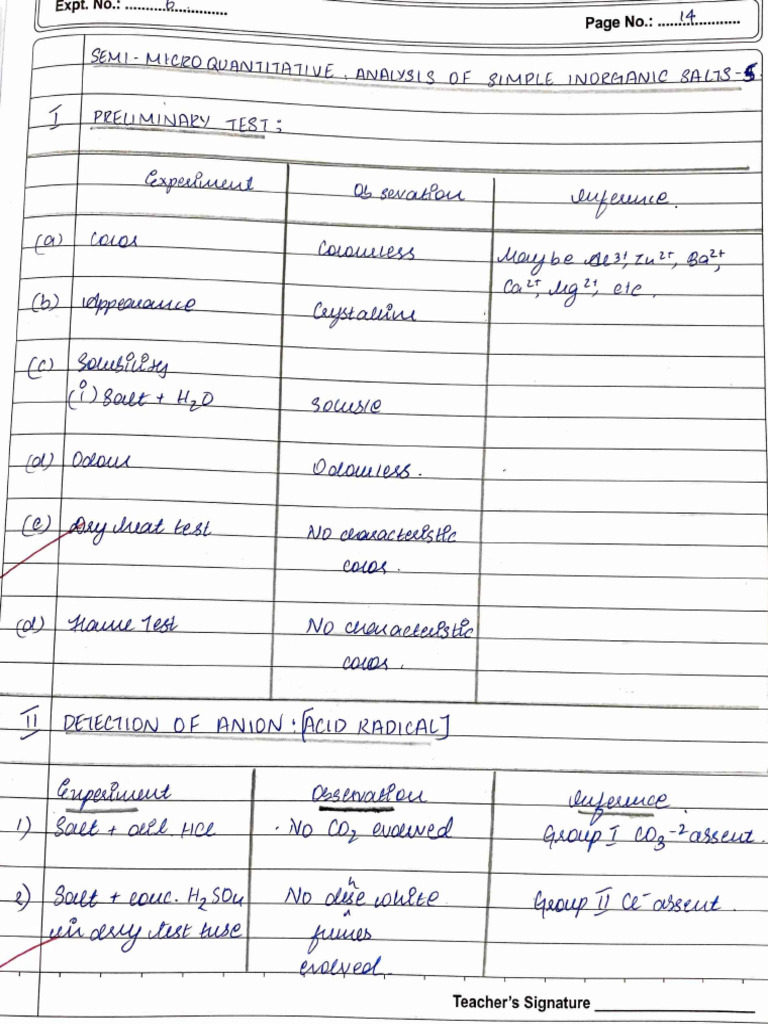 Expt. No.: 6
Page No.: 14
SEMI-MICRO QUANTITATIVE ANALYSIS OF SIMPLE INORGANIC SALTS-5
I PRELIMINARY TEST:
Experiment Observation Inference.
(a) Color Colourless Maybe Al³⁺, Zn²⁺, Ba²⁺,
Ca²⁺, Mg²⁺, etc.
(b) Appearance Crystalline
(c) Solubility
(i) Salt + H₂O Soluble
(d) Odour Odourless.
(e) Dry heat test No characteristic
color.
(d) Flame Test No characteristic
color.
II DETECTION OF ANION: [ACID RADICAL]
Experiment Observation Inference.
1) Salt + dil. HCl No CO₂ evolved Group I CO₃⁻² absent.
2) Salt + conc. H₂SO₄ No dense white Group II Cl⁻ absent.
in dry test tube fumes
evolved.
Teacher's Signature